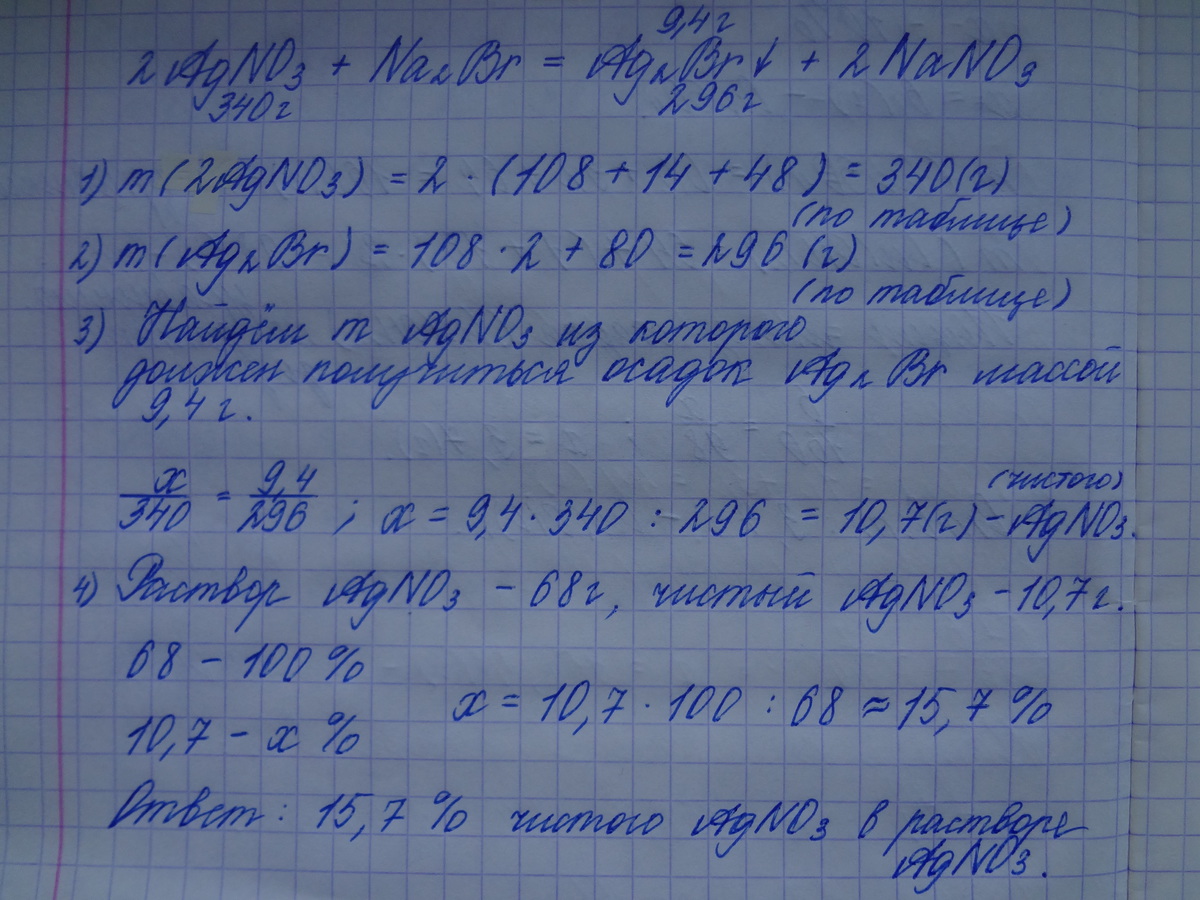 9,4г
2AgNO₃ + Na₂Br = Ag₂Br↓ + 2NaNO₃
340г 296г
1) m(2AgNO₃) = 2 · (108 + 14 + 48) = 340(г)
(по таблице)
2) m(Ag₂Br) = 108 · 2 + 80 = 296 (г)
(по таблице)
3) Найдём m AgNO₃ из которого
должен получиться осадок Ag₂Br массой
9,4г.
(чистого)
x/340 = 9,4/296 ; x = 9,4 · 340 : 296 = 10,7(г) – AgNO₃.
4) Раствор AgNO₃ – 68г, чистый AgNO₃ – 10,7г.
68 – 100%
x = 10,7 · 100 : 68 ≈ 15,7%
10,7 – x %
Ответ: 15,7% чистого AgNO₃ в растворе
AgNO₃.